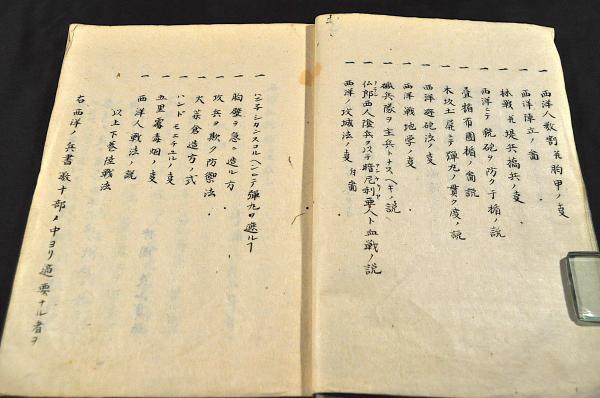 一 西洋人数割並胸甲ノ叓
一 西洋陣立ノ圖
一 林戦並堤兵橋兵ノ叓
一 西洋ニテ銃砲ヲ防ク手楯ノ説
一 畳楯布團楯ノ圖説
一 木 土 ニテ弾丸ノ貫ク度ノ説
一 西洋避砲法ノ叓
一 西洋戦地学ノ叓
一 礟兵隊ヲ主兵トナスヘキノ説
一 仏郎西人陸兵ヲ以テ諳厄利亜人ト血戦ノ説
一 西洋ノ攻城法ノ叓 付圖
一 ハンチシタンスコルヘンニテ弾丸ヲ遮ルヿ
一 胸壁ヲ急ニ造ル方
一 攻兵ヲ欺ク防禦法
一 火薬倉造方ノ式
一 ハンドモニチユルノ叓
一 五里霧毒烟ノ叓
一 西洋人戦法ノ説
以上下巻陸戦法
右西洋ノ兵書数十部ノ中ヨリ適要ナル者ヲ